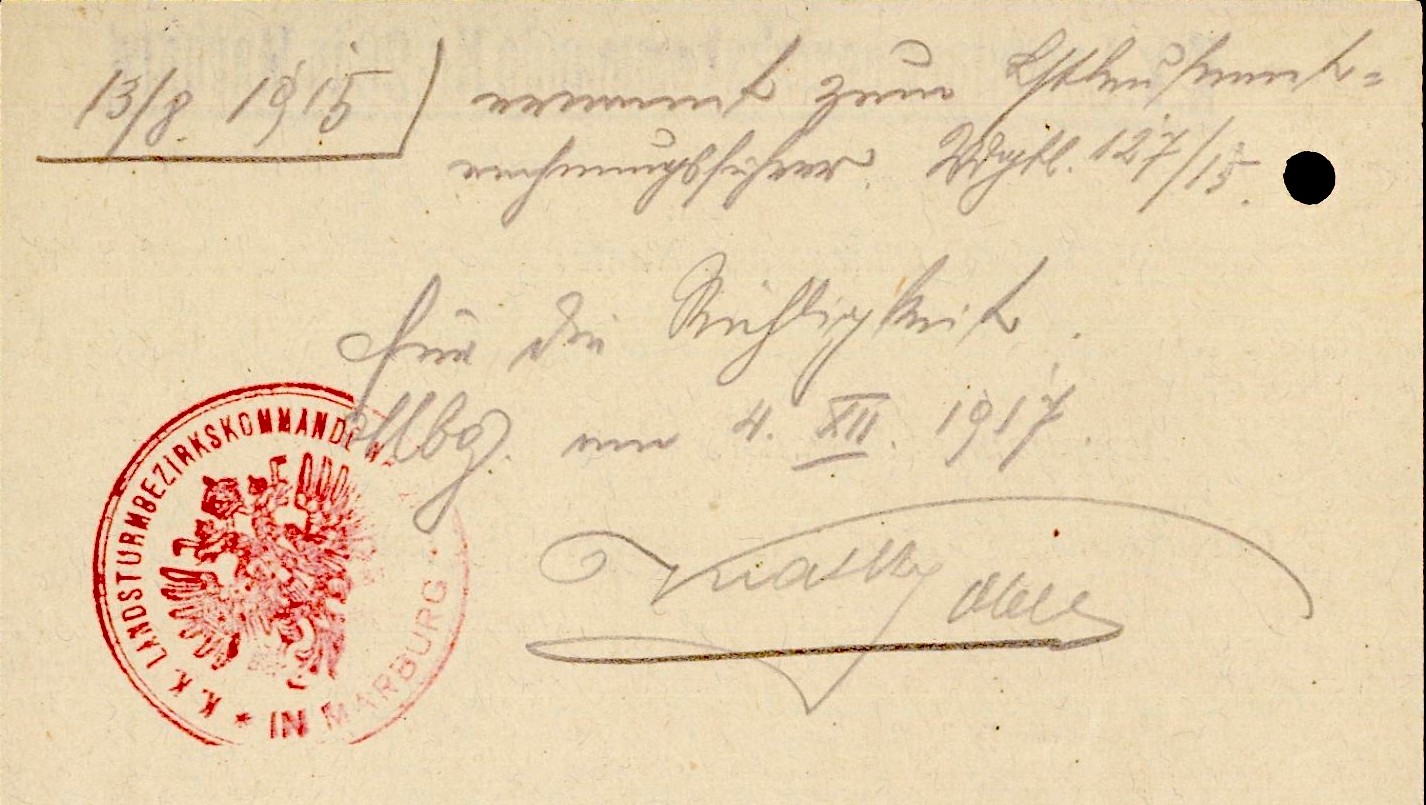 13/8. 1915 ernannt zum Lstleutnant-
rechnungsführer. 127/15.
Für die Richtigkeit.
Mbg. am 4. XII. 1917.
K. K. LANDSTURMBEZIRKSKOMMANDO N
* IN MARBURG